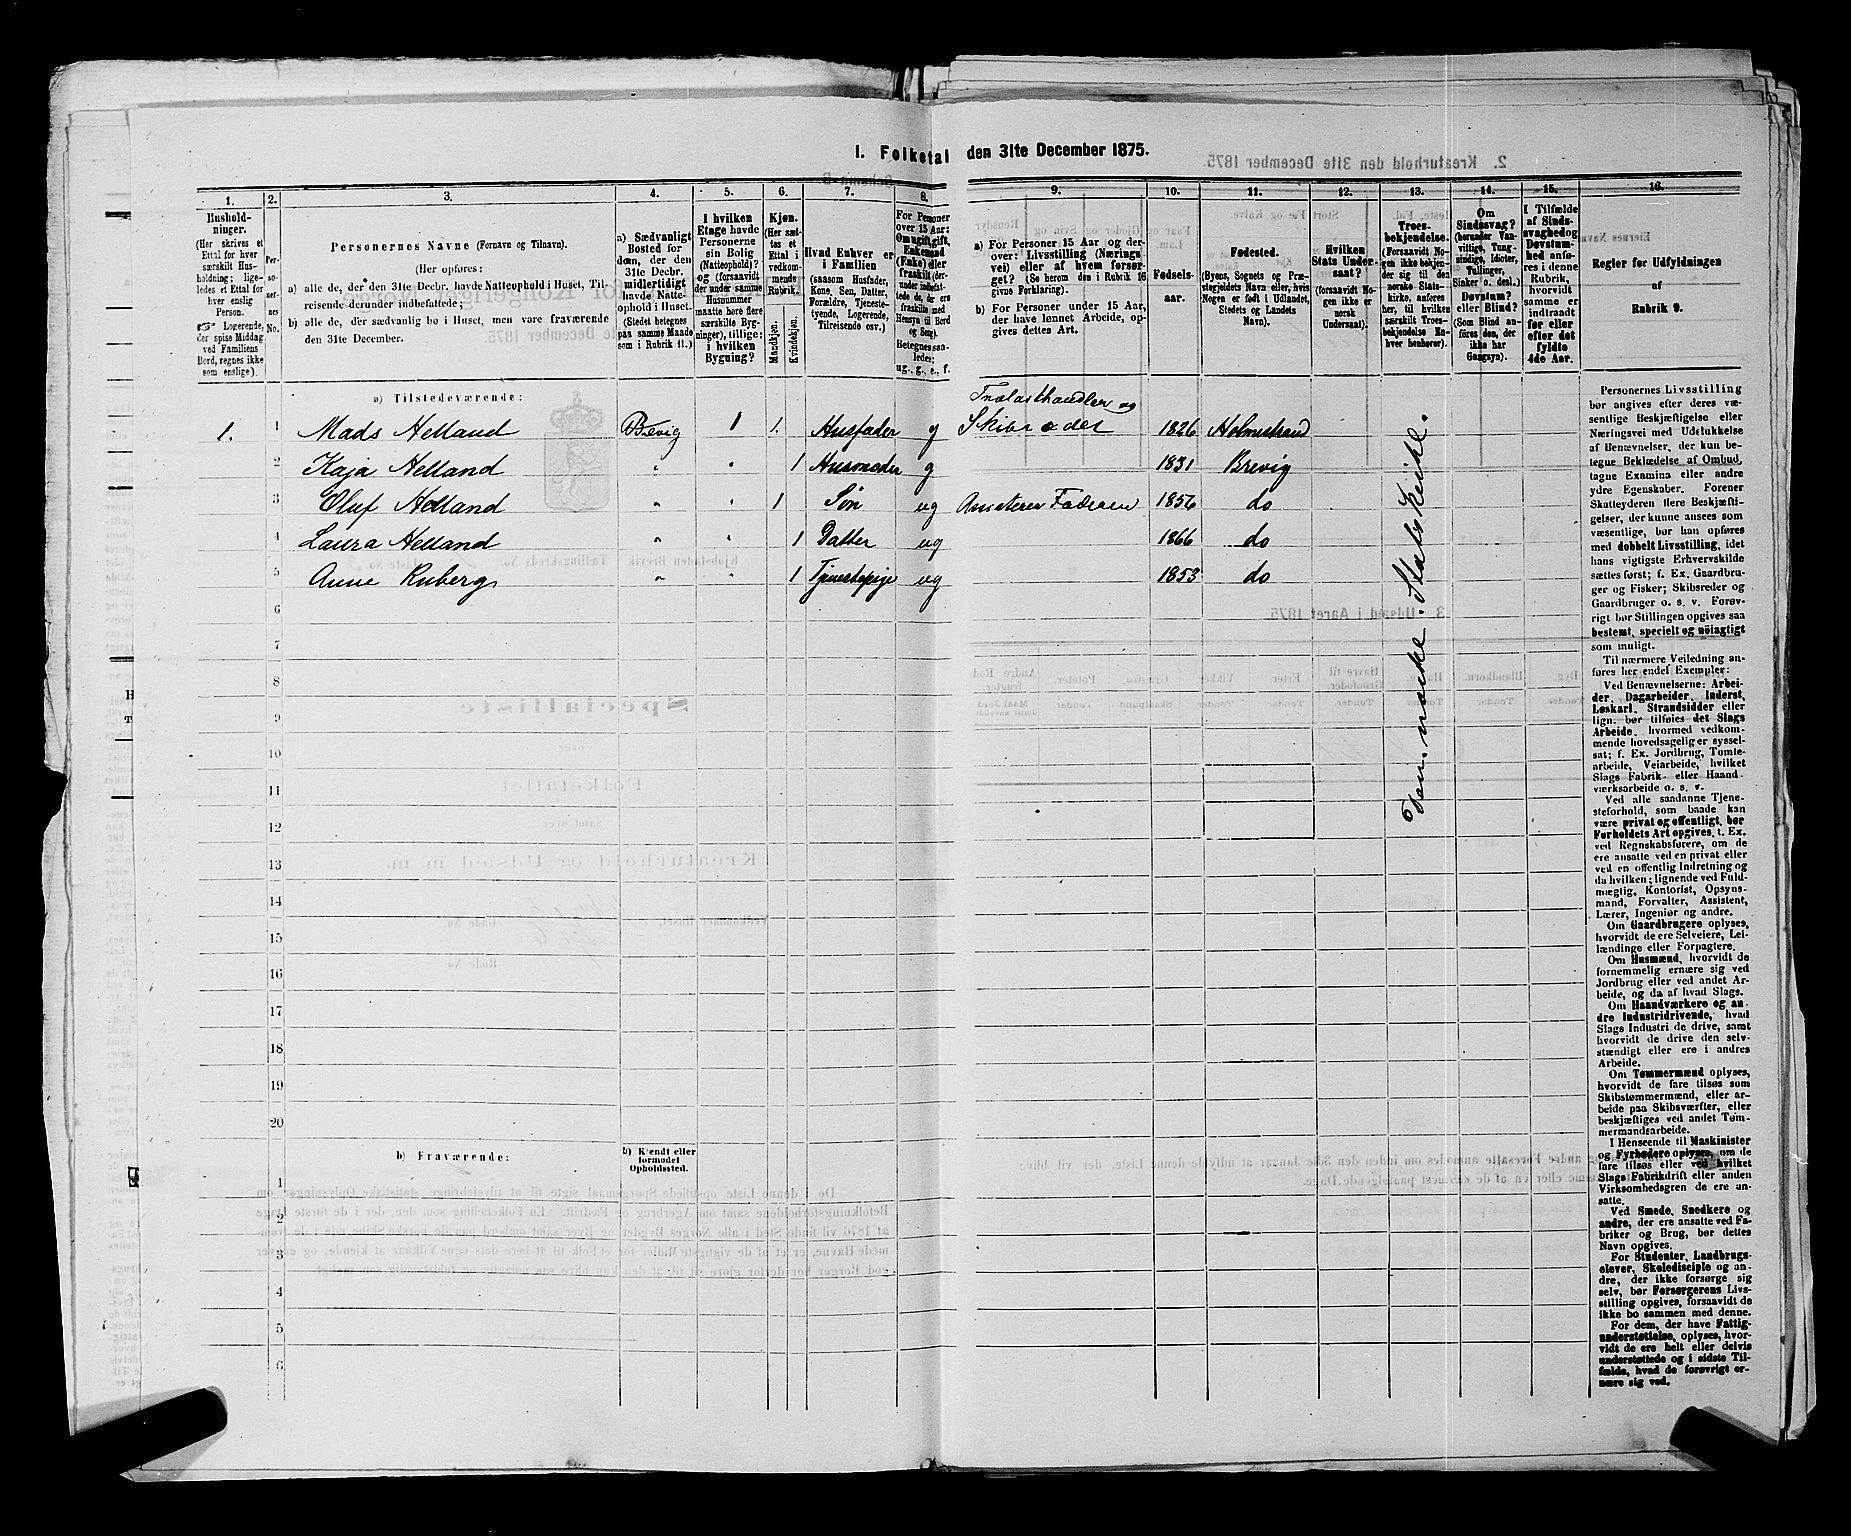 1. Folketal den 31te December 1875.
1. 2. 3. 4. 5. 6. 7. 8. 9. 10. 11. 12. 13. 14. 15. 16.
Hushold-
ninger.
(Her skrives et
Ettal for hver
særskilt Hus-
holdning; lige-
ledes et Ettal for
hver enslig
Person.
Logerende,
der spise Middag
ved Familiens
Bord, regnes ikke
som enslige).
Per-
so-
ner-
nes
No.
Personernes Navne (Fornavn og Tilnavn).
(Her opføres:
a) alle de, der den 31te Decbr. havde Natteophold i Huset, Til-
reisende derunder indbefattede;
b) alle de, der sædvanlig bo i Huset, men vare fraværende
den 31te December.
a) Sædvanligt
Bosted for
dem, der den
31te Decbr.
midlertidigt
havde Natte-
ophold i Huset.
(Stedet betegnes
paa samme Maade
som i Rubrik 11.)
I hvilken
Etage havde
Personerne
sin Bolig
(Natteophold)?
og (forsaavidt
der under samme
Husnummer
maatte høre flere
særskilte Byg-
ninger), tillige:
i hvilken
Bygning?
Kjøn.
(Her sæt-
tes et
Ettal i
vedkom-
mende
Rubrik.)
Mandkjøn.
Kvindekjøn.
Hvad Enhver er
i Familien
(saasom Husfader,
Kone, Søn, Datter,
Forældre, Tjeneste-
tyende, Logerende,
Tilreisende osv.)
For Personer
over 15 Aar:
Om ugift, gift,
Enkemand
(Enke) eller
fraskilt
Betegnes saa-
ledes:
ug., g., e., f.
a) For Personer 15 Aar og der-
over: Livsstilling (Nærings-
vei) eller af hvem forsør-
get? (Se herom den i Rubrik 16
givne Forklaring).
b) For Personer under 15 Aar,
der have lønnet Arbeide, op-
gives dettes Art.
Fødsels-
aar.
Fødested.
(Byens, Sognets og Præ-
stegjeldets Navn eller, hvis
Nogen er født i Udlandet,
Stedets og Landets
Navn).
Hvilken
Stats Under-
saat?
(forsaavidt No-
gen ikke er
norsk
Undersaat).
Troes-
bekjendelse.
(Forsaavidt No-
gen ikke bekjen-
der sig til den
norske Stats-
kirke, anføres
her, til hvilken
særskilt Troes-
bekjendelse En-
hver henhører).
Om
Sindssvag?
(herunder Van-
vittige, Tung-
sindige, Idioter,
Tullinger,
Sinker o. desl.)
Døvstum?
eller Blind?
(Som Blind an-
føres den, der
ikke har
Gangsyn).
I Tilfælde
af Sinds-
svaghed og
Døvstum-
hed anfø-
res i denne
Rubrik,
hvorvidt
samme er
indtraadt
før eller
efter det
fyldte
4de Aar.
Regler for Udfyldningen
af
Rubrik 9.
a) Tilstedeværende:
Trælasthandler og
1. 1 Mads Helland Brevig 1 1. Husfader g Skibsreder 1826 Holmestrand
2 Kaja Helland " " 1 Husmoder g 1831 Brevig
3 Oluf Helland " " 1 Søn ug Assisterer Faderen 1856 do
4 Laura Helland " " 1 Datter ug 1866 do
5 Anne Ruberg " " 1 Tjenestepige ug 1853 do
Den norske Statskirke.
6
7
8
9
10
11
12
13
14
15
16
17
18
19
20
b) Fraværende:
b) Kjendt eller
formodet
Opholdssted.
1
2
3
4
5
6
Personernes Livsstilling
bør angives efter deres væ-
sentlige Beskjæftigelse eller
Næringsvei med Udelukkelse
af Benævnelser, der kun be-
tegne Beklædelse af Ombud,
tagne Examina eller andre
ydre Egenskaber. Forener
Skatteyderen flere Beskjæfti-
gelser, der kunne ansees som
væsentlige, bør han opføres
med dobbelt Livsstilling, idet
hans vigtigste Erhvervskilde
sættes først; f. Ex. Gaardbru-
ger og Fisker; Skibsreder og
Gaardbruger o. s. v. Forøv-
rigt bør Stillingen opgives saa
bestemt, specielt og nøiagtigt
som muligt.
Til nærmere Veiledning an-
føres her endel Exempler:
Ved Benævnelserne: Arbei-
der, Dagarbeider, Inderst,
Løskarl, Strandsidder eller
lign. bør tilføies det Slags
Arbeide, hvormed vedkom-
mende hovedsagelig er syssel-
sat; f. Ex. Jordbrug, Tømte-
arbeide, Veiarbeide, hvilket
Slags Fabrik- eller Haand-
værksarbeide o. s. v.
Ved alle saadanne Tjene-
steforhold, som baade kan
være privat og offentligt, bør
Forholdets Art opgives, t. Ex.
ved Regnskabsførere, om de
ere ansatte ved en privat eller
ved en offentlig Indretning og
da hvilken; lignende ved Fuld-
mægtig, Kontorist, Opsyns-
mand, Forvalter, Assistent,
Lærer, Ingeniør og andre.
Om Gaardbrugere oplyses,
hvorvidt de ere Selveiere, Lei-
lændinge eller Forpagtere.
Om Husmænd, hvorvidt de
fornemmelig ernære sig ved
Jordbrug eller ved andet Ar-
beide, og da af hvad Slags.
Om Haandværkere og an-
dre Industridrivende, hvad
Slags Industri de drive, samt
hvorvidt de drive den selv-
stændigt eller ere i andres
Arbeide.
Om Tømmermænd oplyses,
hvorvidt de fare tilsøs som
Skibstømmermænd, eller ar-
beide paa Skibsværfter, eller
beskjæftiges ved andet Tøm-
mermandsarbeide.
I Henseende til Maskinister
og Fyrbødere oplyses, om de
fare tilsøs eller ved hvilket
Slags Fabrikdrift eller anden
Virksomhedsgren de ere an-
satte.
Ved Smede, Snedkere og
andre, der ere ansatte ved Fa-
briker og Brug, bør dettes
Navn opgives.
For Studenter, Landbrugs-
elever, Skoledisciple og an-
dre, der ikke forsørge sig
selv, bør Forsørgerens Livs-
stilling opgives, forsaavidt de
ikke bo sammen med denne.
For dem, der have Fattig-
understøttelse, oplyses, hvor-
vidt de ere helt eller delvis
understøttede og i sidste Til-
fælde, hvad de forøvrigt er-
nære sig ved.